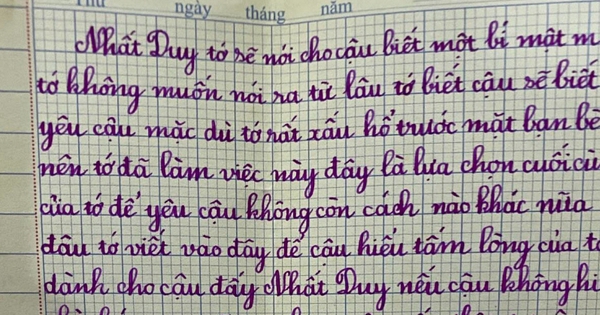 Thứ ngày tháng năm
Nhất Duy tớ sẽ nói cho cậu biết một bí mật m
tớ không muốn nói ra từ lâu tớ biết cậu sẽ biết
yêu cậu mặc dù tớ rất xấu hổ trước mặt bạn bè
nên tớ đã làm việc này đây là lựa chọn cuối cù
của tớ để yêu cậu không còn cách nào khác nữa
đâu tớ viết vào đây để cậu hiểu tấm lòng của tớ
dành cho cậu đấy Nhất Duy nếu cậu không hi